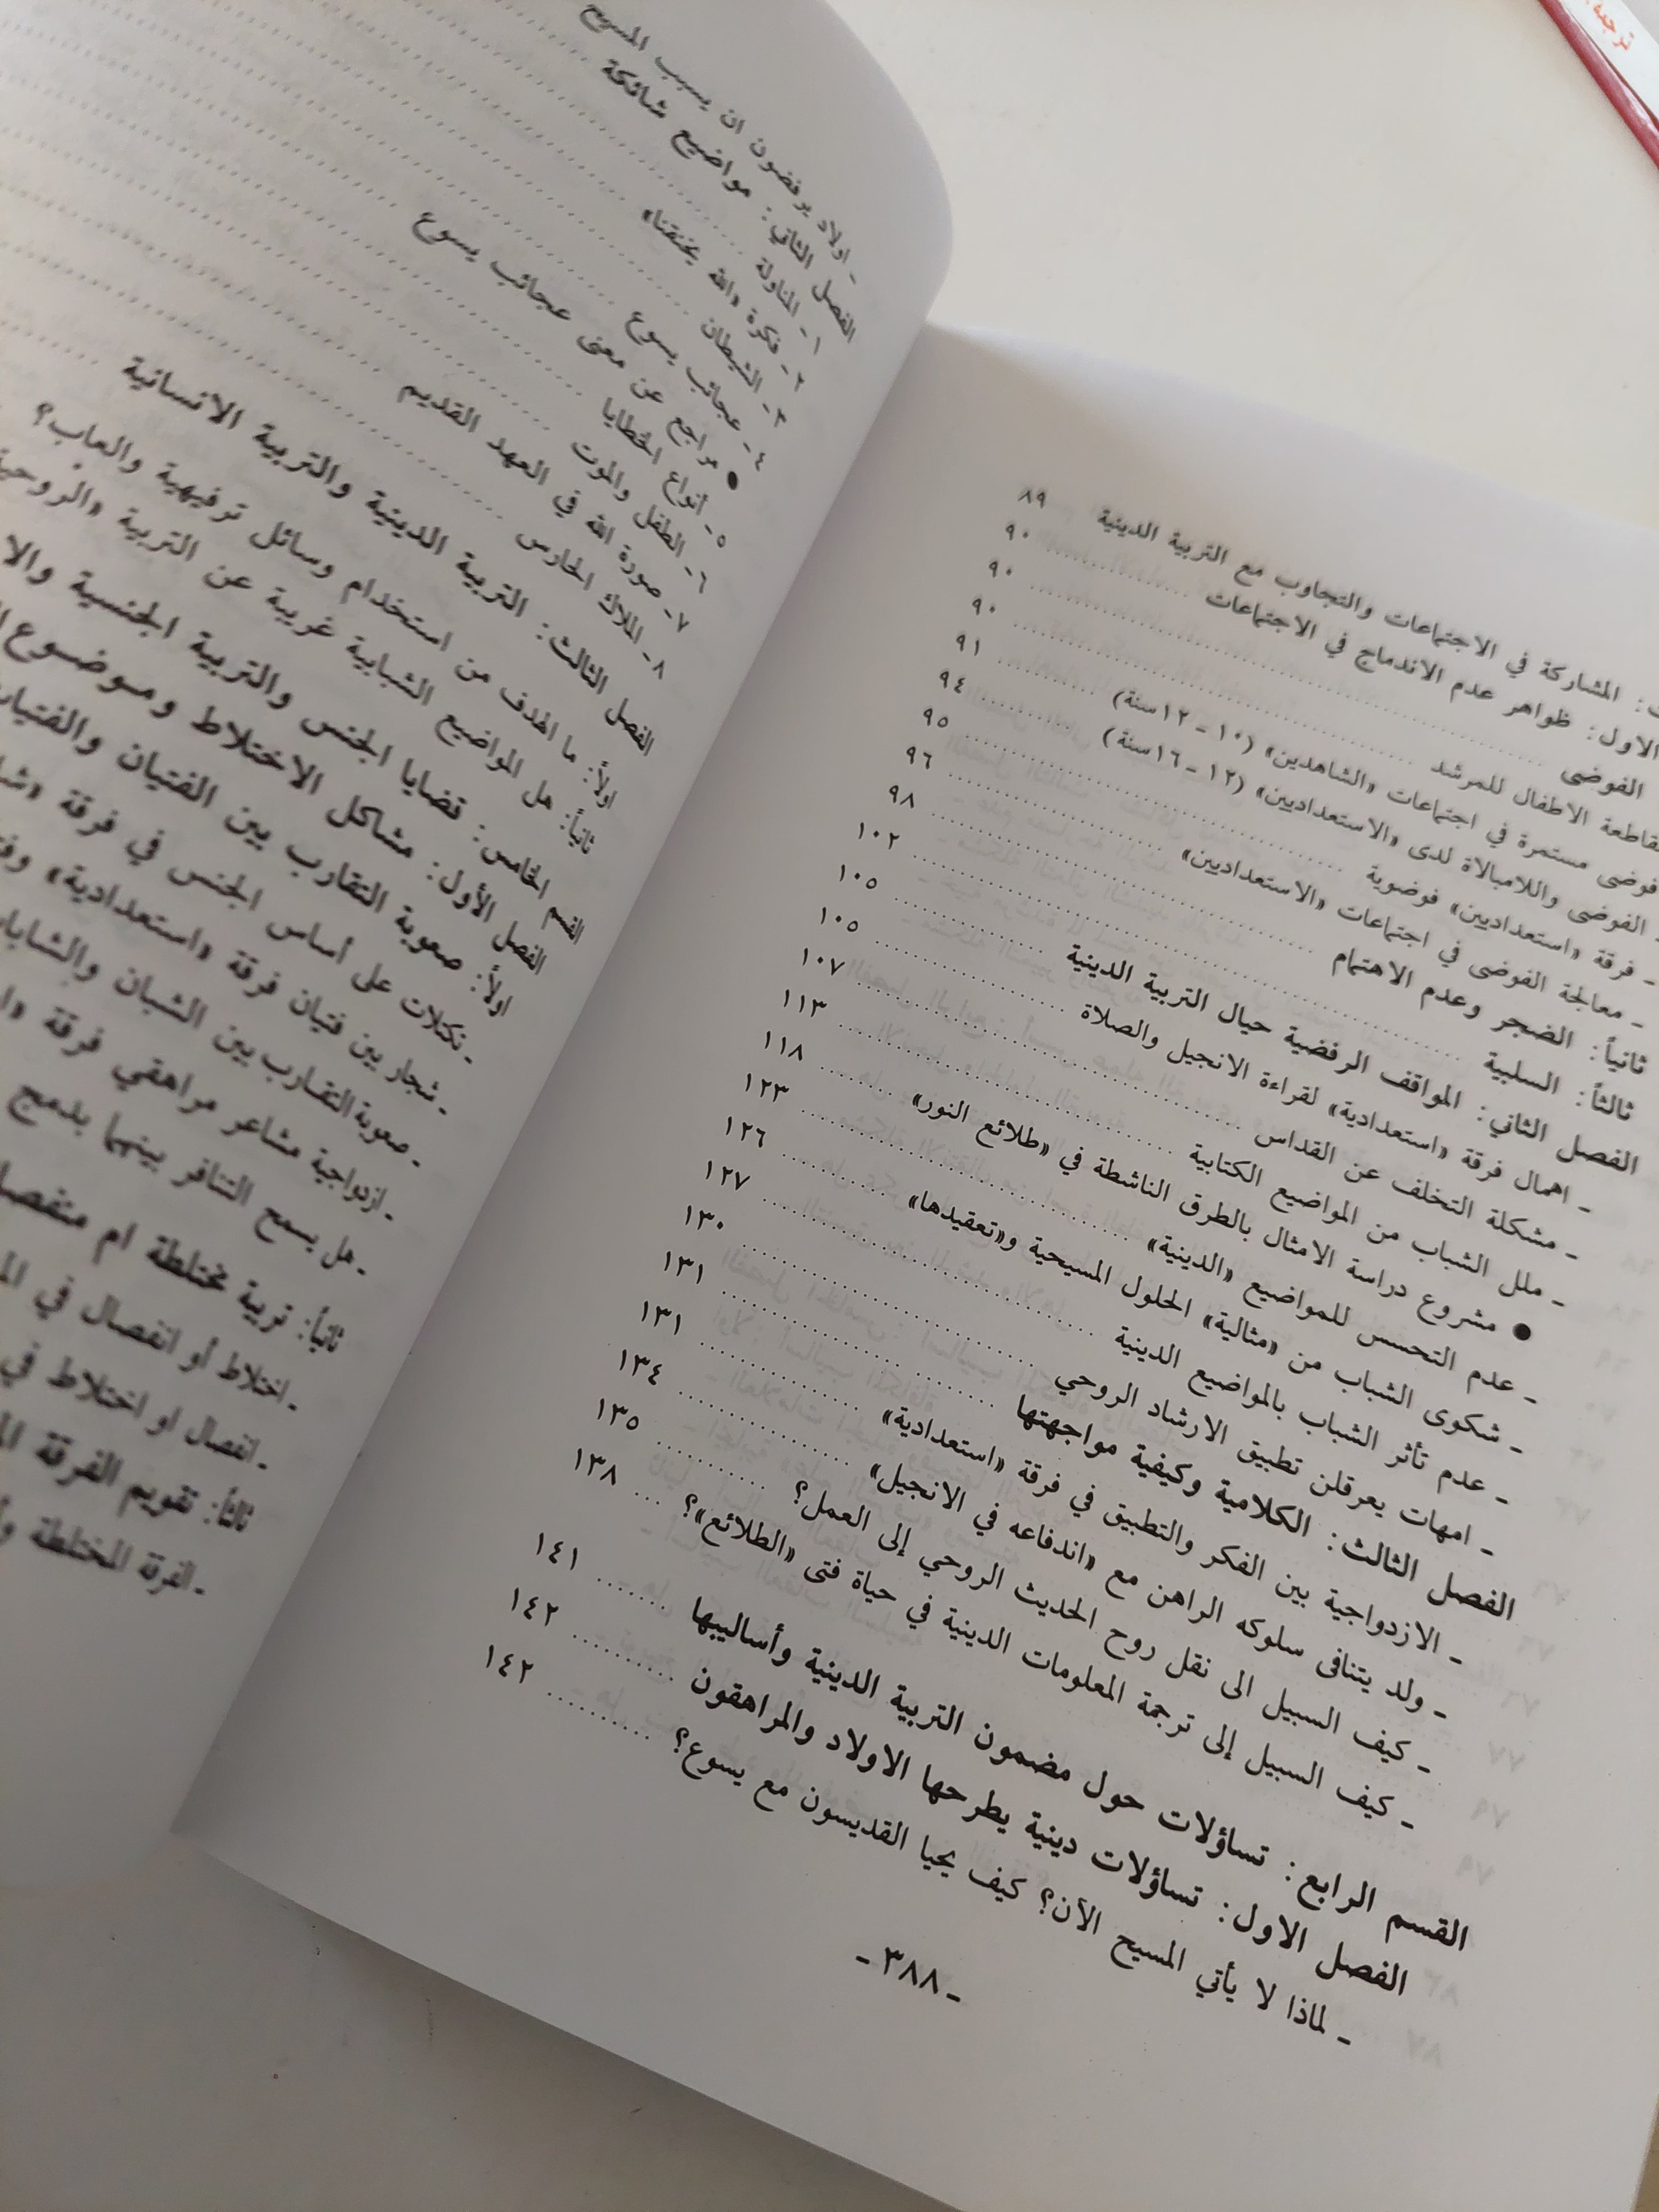 : المشاركة في الاجتماعات والتجاوب مع التربية الدينية ٨٩
الاول: ظواهر عدم الاندماج في الاجتماعات ٩٠
الفوضى ٩٠
قاطعة الاطفال للمرشد ٩٠
فوضى مستمرة في اجتماعات «الشاهدين» (١٠ - ١٢ سنة) ٩١
- الفوضى واللامبالاة لدى «الاستعداديين» (١٢ - ١٦ سنة) ٩٤
- فرقة «استعداديين» فوضوية ٩٥
- معالجة الفوضى في اجتماعات «الاستعداديين» ٩٦
ثانياً: الضجر وعدم الاهتمام ٩٨
ثالثاً: السلبية ١٠٢
الفصل الثاني: المواقف الرفضية حيال التربية الدينية ١٠٥
- اهمال فرقة «استعدادية» لقراءة الانجيل والصلاة ١٠٥
- مشكلة التخلف عن القداس ١٠٧
- ملل الشباب من المواضيع الكتابية ١١٣
● مشروع دراسة الامثال بالطرق الناشطة في «طلائع النور» ١١٨
- عدم التحسس للمواضيع «الدينية» ١٢٣
- شكوى الشباب من «مثالية» الحلول المسيحية و«تعقيدها» ١٢٦
- عدم تأثر الشباب بالمواضيع الدينية ١٢٧
- امهات يعرقلن تطبيق الارشاد الروحي ١٣٠
الفصل الثالث: الكلامية وكيفية مواجهتها ١٣١
- الازدواجية بين الفكر والتطبيق في فرقة «استعدادية» ١٣١
- ولد يتنافى سلوكه الراهن مع «اندفاعه في الانجيل» ١٣٤
- كيف السبيل الى نقل روح الحديث الروحي إلى العمل؟ ١٣٥
- كيف السبيل إلى ترجمة المعلومات الدينية في حياة فتى «الطلائع»؟ ١٣٨
القسم الرابع: تساؤلات حول مضمون التربية الدينية وأساليبها ١٤١
الفصل الاول: تساؤلات دينية يطرحها الاولاد والمراهقون ١٤٢
- لماذا لا يأتي المسيح الأن؟ كيف يحيا القديسون مع يسوع؟ ١٤٢
- ٣٨٨ -
- اولاد يرفضون ان يسبب المسيح
الفصل الثاني: مواضيع شائكة
١ - المناولة
٢ - فكرة «الله يخنقنا»
٣ - الشيطان
٤ - عجائب يسوع
● مراجع عن معنى عجائب يسوع
٥ - أنواع الخطايا
٦ - الطفل والموت
٧ - صورة الله في العهد القديم
٨ - الملاك الحارس
الفصل الثالث: التربية الدينية والتربية الانسانية
اولاً: ما الهدف من استخدام وسائل ترفيهية والعاب؟
ثانياً: هل المواضيع الشبابية غريبة عن التربية «الروحية
القسم الخامس: قضايا الجنس والتربية الجنسية والا
الفصل الأول: مشاكل الاختلاط وموضوع
اولاً: صعوبة التقارب بين الفتيان والفتيات
- تكتلات على أساس الجنس في فرقة
- شجار بين فتيان فرقة «استعدادية»
- صعوبة التقارب بين الشبان والشابات
- ازدواجية مشاعر مراهقي فرقة
- هل يسمح التنافر بينهما بدمج
ثانياً: تربية مختلطة ام منفصلة
- اختلاط أو انفصال في
- انفصال او اختلاط في
ثالثاً: تقويم الفرقة
- الفرقة المختلطة
ترجمة